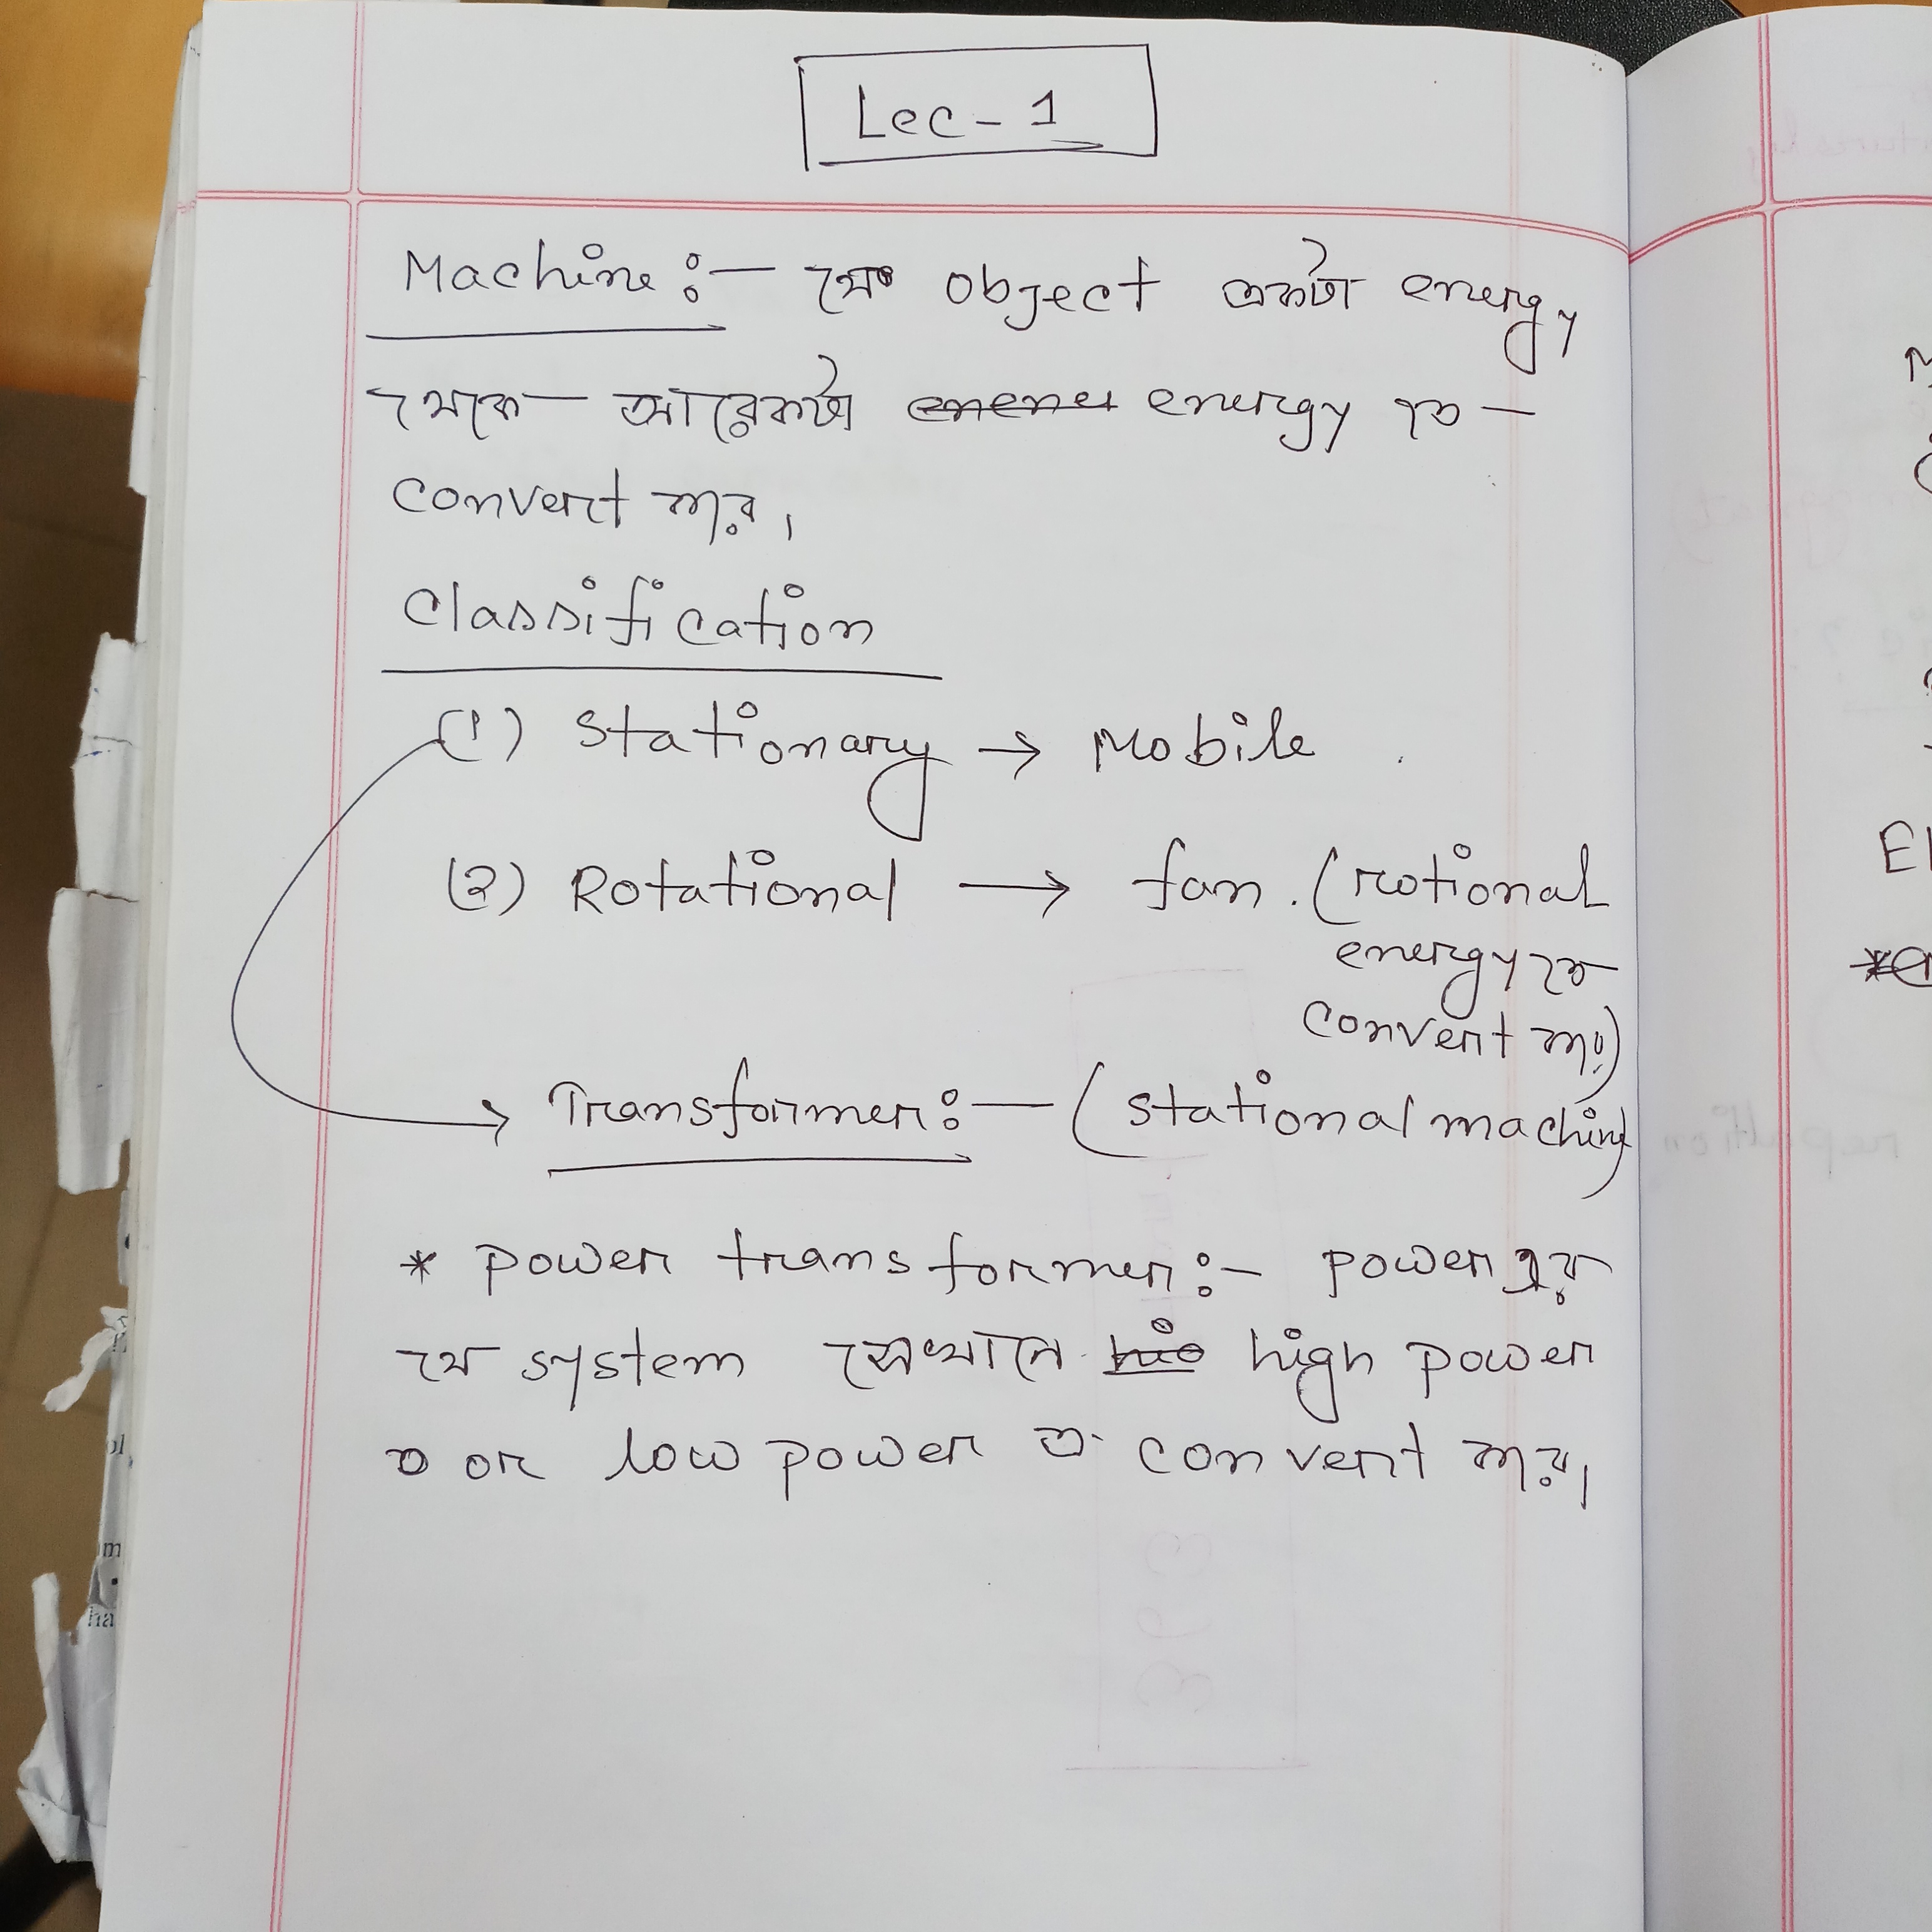 Lec-1
Machine :- যে object একটা energy
থেকে আরেকটা energy তে
convert করে।
Classification
(1) Stationary → Mobile
(2) Rotational → fan. (rotional
energy তে
convert করে)
→ Transformer :- (stational machine)
* power transformer :- power এর
যে system সেখানে high power
or low power এ convert করে।